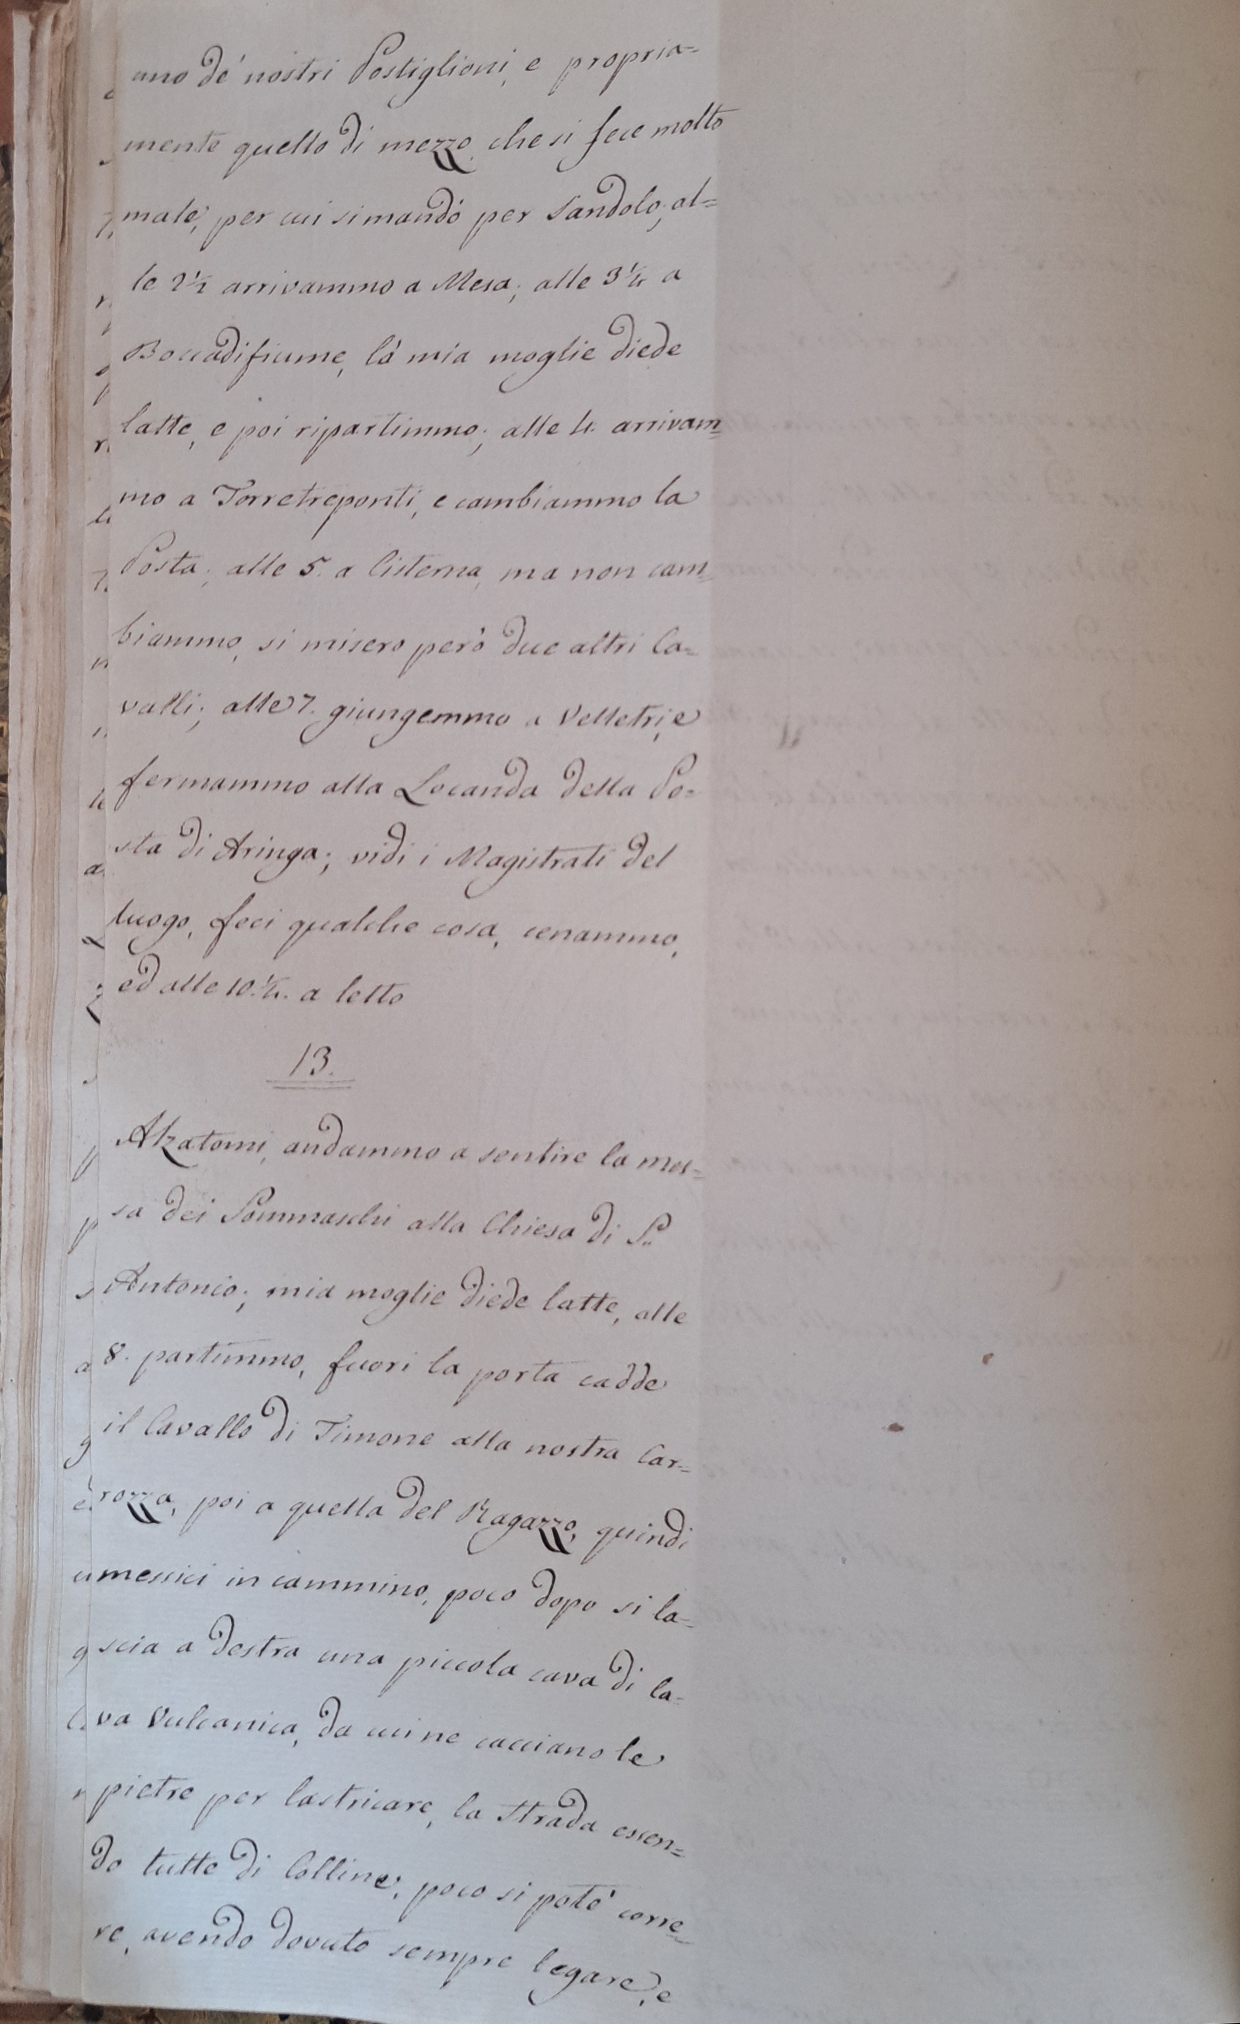 uno de' nostri Postiglioni, e propria=
mente quello di mezzo, che si fece molto
male, per cui si mandò per Sandolo, al=
le 2½ arrivammo a Mesa; alle 3¼ a
Boccadifiume, là mia moglie diede
latte, e poi ripartimmo; alle 4. arrivam=
mo a Torretreponti, e cambiammo la
Posta; alle 5. a Cisterna, ma non cam=
biammo, si misero però due altri Ca=
valli; alle 7. giungemmo a Velletri, e
fermammo alla Locanda della Po=
sta di Aringa; vidi i Magistrati del
luogo, feci qualche cosa, cenammo,
ed alle 10.¼. a letto
13.
Alzatomi, andammo a sentire la mes=
sa dei Sommaschi alla Chiesa di S.
Antonio; mia moglie diede latte, alle
8. partimmo, fuori la porta cadde
il Cavallo di Timone alla nostra Car=
rozza, poi a quella del Ragazzo, quindi
messici in cammino, poco dopo si la=
scia a destra una piccola cava di la=
va Vulcanica, da cui ne cacciano le
pietre per lastricare, la strada essen=
do tutte di Colline, poco si potè corre=
re, avendo dovuto sempre legare, e